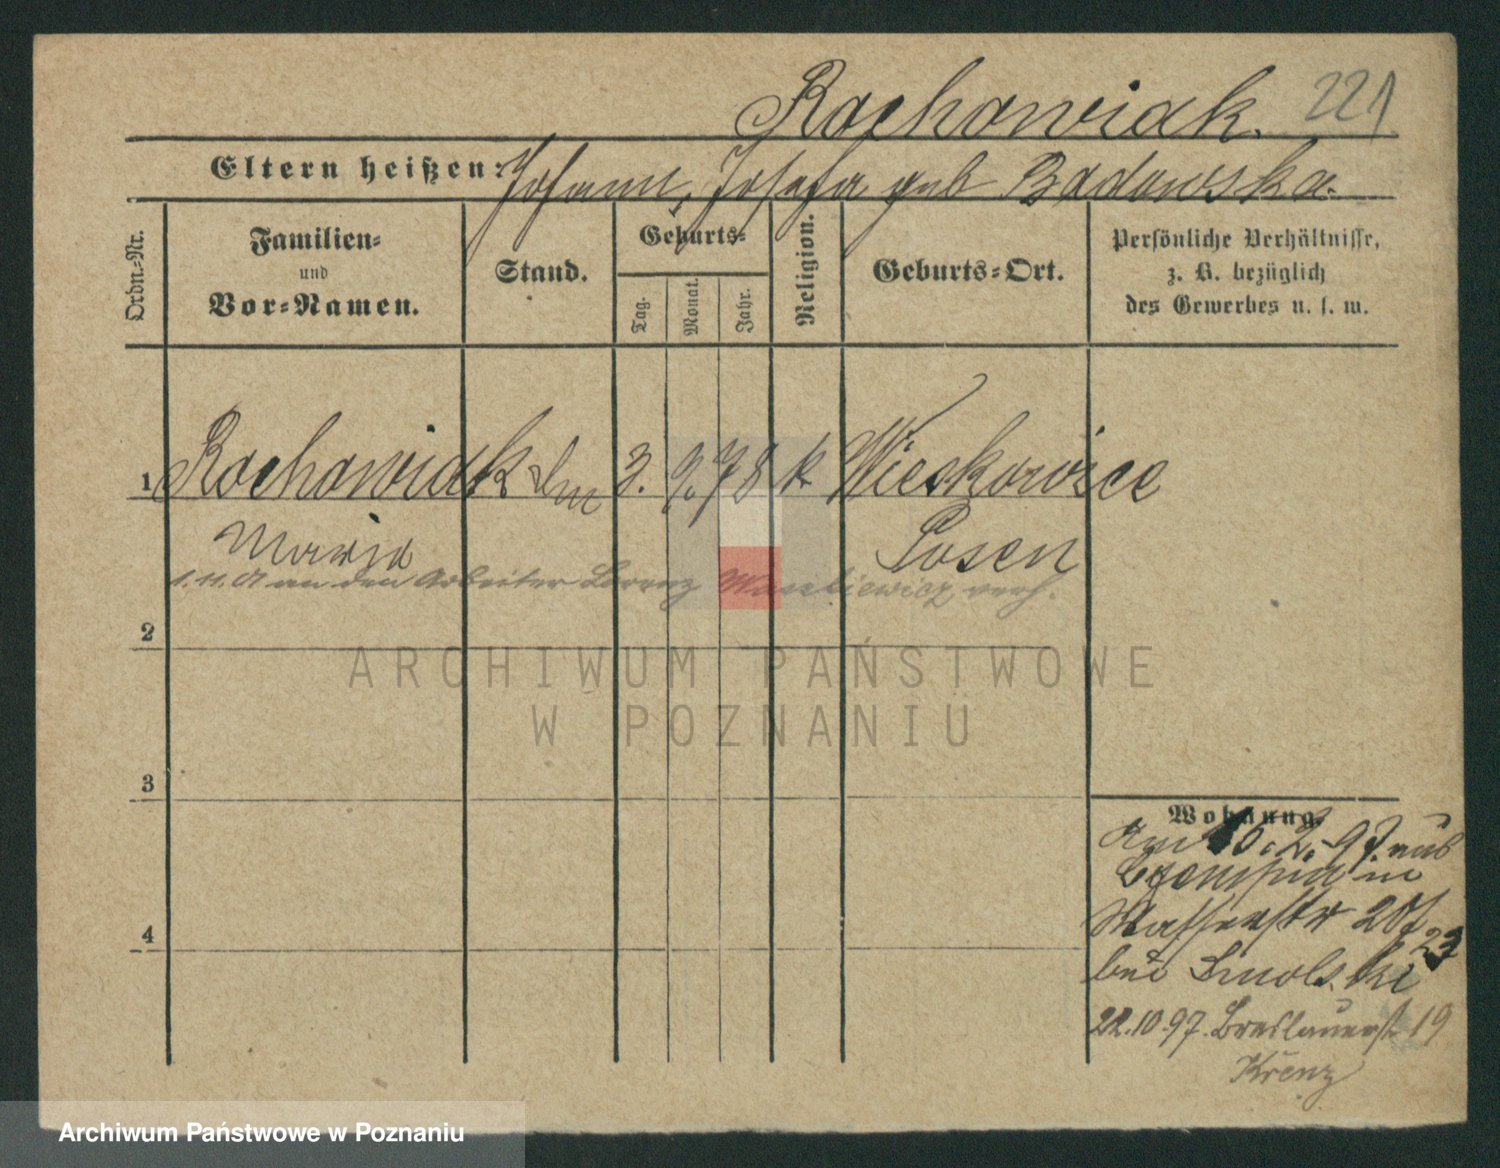 Rochowiak. 221
Eltern heißen: Johann, Josefa geb Badowska.
Ordn.-Nr.
Familien-
und
Vor-Namen.
Stand.
Geburts-
Tag.
Monat.
Jahr.
Religion.
Geburts-Ort.
Persönliche Verhältnisse,
z. B. bezüglich
des Gewerbes u. s. w.
1 Rochowiak 3. 9. 78 k Wieskowice
Maria Posen
1.11.01 an den Arbeiter Lorenz Waszkiewicz verh.
2
3
4
Wohnung.
Am 16.2.97. aus
in
Wasserstr 20/23
bei Smolski
22.10.97. Breslauerst 19
Krenz
ARCHIWUM PAŃSTWOWE
W POZNANIU
Archiwum Państwowe w Poznaniu